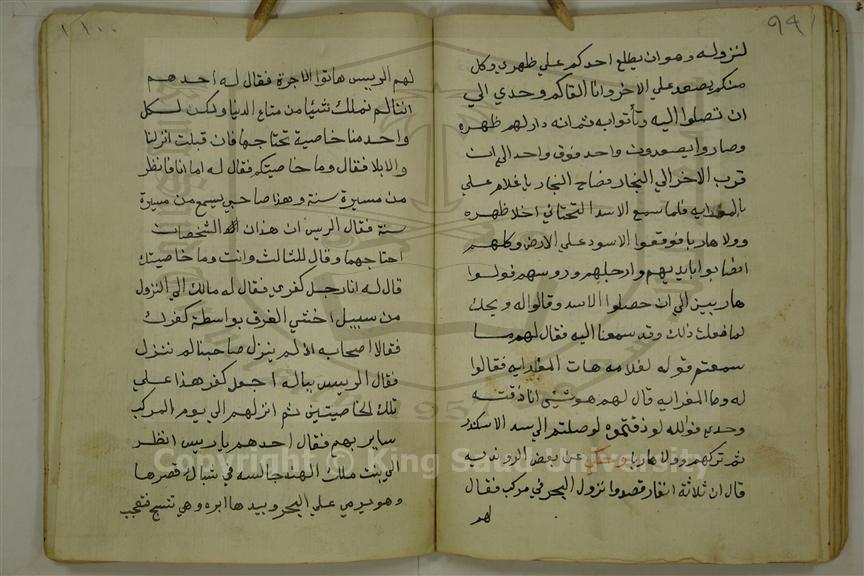 ٩٩
لنزوله وهو ان يطلع احدكم علي ظهري وكل
منكم يصعد علي الاخر وانا القاكم وحدي الي
ان تصلوا اليه وتأتوا به ثم انه دار لهم ظهره
وصاروا يصعدون واحد فوق واحد الي ان
قرب الاخر الي النجار فصاح النجار يا غلام علي
بالمغرابه فلما سمع الاسد التحتاني اخلا ظهره
وولا هاربا فوقعوا الاسود علي الارض وكلهم
انصابوا بايديهم وارجلهم وروسهم فولوا
هاربين الي ان حصلوا الاسد وقالوا له ويحك
لما فعلت ذلك وقد سمعنا اليه فقال لهم ما
سمعتم قوله لغلامه هات المغرابه فقالوا
له وما المغرابه قال لهم هو شئ انا ذقته
وحدي فوالله لو ذقتموه لوصلتم الي سد الاسكندر
ثم تركهم وولا هاربا وحكي عن بعض الروندبه
قال ان ثلاثة انفار قصدوا نزول البحر في مركب فقال
لهم
١٠٠
لهم الرييس هاتوا الاجرة فقال له احدهم
اننا لم نملك شئيا من متاع الدنيا ولكن لكل
واحد منا خاصية تحتاجها فان قبلت انزلنا
والا بلا فقال وما خاصيتكم فقال له اما انا فانظر
من مسيرة سنة وهذا صاحبي يسمع من مسيرة
سنة فقال الريس ان هذان الشخصان
احتاجهما وقال للثالث وانت وما خاصيتك
قال له انا رجل كفري فقال له مالك الي النزول
من سبيل اختشي الغرق بواسطة كفرك
فقالا اصحابه ان لم ينزل صاحبنا لم ننزل
فقال الرييس بباله اجعل كفر هذا علي
تلك الخاصيتين ثم انزلهم الي يوم المركب
ساير بهم فقال احدهم يا ريس انظر
الي بنت ملك الهند جالسه في شباك قصرها
وهو يرمي علي البحر وبيدها ابره وهي تنسج فتعجب
Copyright © King Saud University